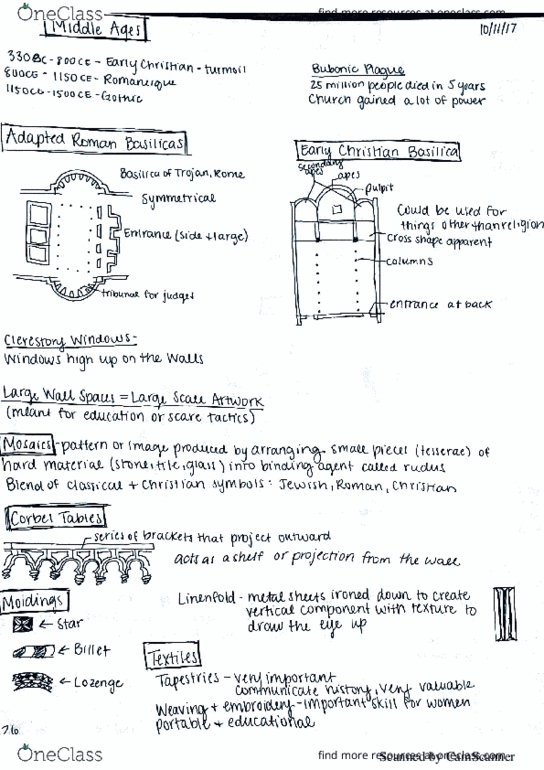 OneClass
find more resources at oneclass.com
Middle Ages
10/11/17
330BC-800CE - Early Christian - turmoil
800CE - 1150CE - Romanesque
1150CE-1500CE-Gothic
Bubonic Plague
25 million people died in 5 years
Church gained a lot of power
Adapted Roman Basilicas
Early Christian Basilica
Basilica of Trojan, Rome
Symmetrical
Entrance (side + large)
tribunal for judges
secondary
apes
apes
pulpit
Could be used for
things other than religion
cross shape apparent
columns
entrance at back
Clerestory Windows-
Windows high up on the walls
Large Wall Spaces = Large Scale Artwork
(meant for education or scare tactics)
Mosaics - pattern or image produced by arranging small pieces (tesserae) of
hard material (stone, tile, glass) into binding agent called rudus
Blend of classical + Christian symbols: Jewish, Roman, Christian
Corbel Tables
series of brackets that project outward
acts as a shelf or projection from the wall
Moldings
← Star
← Billet
← Lozenge
Linenfold - metal sheets ironed down to create
vertical component with texture to
draw the eye up
Textiles
Tapestries - very important
communicate history, very valuable
Weaving + embroidery - important skill for women
portable + educational
OneClass
find more resources at oneclass.com
Scanned by CamScanner